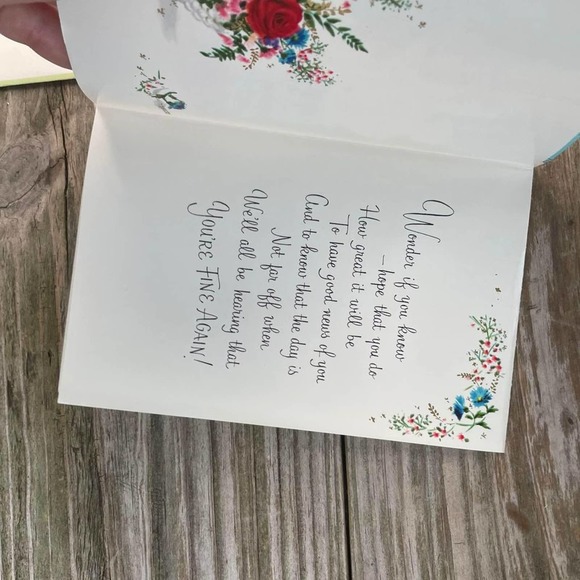 Wonder if you know
– hope that you do
How great it will be
To have good news of you
And to know that the day is
Not far off when
We'll all be hearing that
YOU'RE FINE AGAIN!